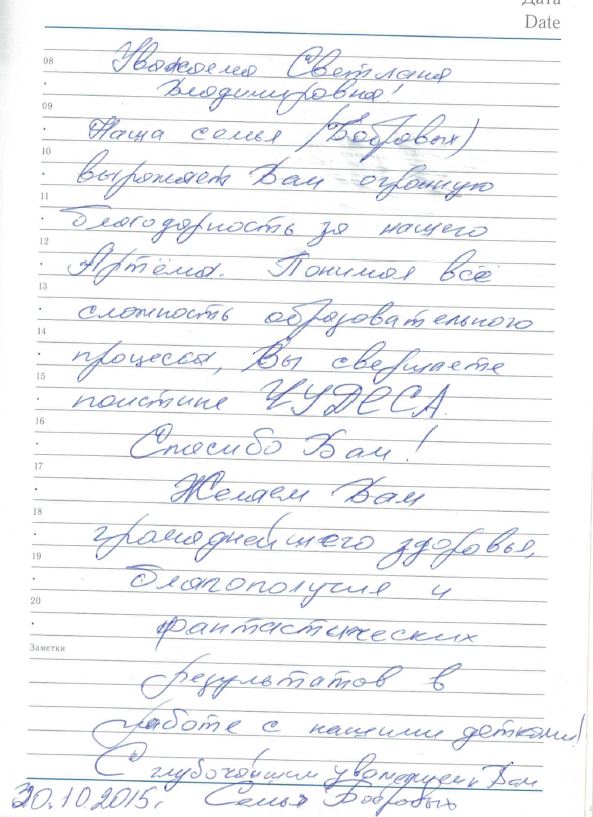 Дата
Date
08
Уважаемая Светлана
Владимировна!
09
Наша семья (Бобровых)
10
выражает Вам огромную
11
благодарность за нашего
12
Артёма. Понимая всё
13
сложность образовательного
14
процесса, Вы свершаете
15
поистине ЧУДЕСА.
16
Спасибо Вам!
17
Желаем Вам
18
громаднейшего здоровья,
19
благополучия и
20
фантастических
Заметки
результатов в
работе с нашими детками!
С глубочайшим уважением к Вам
30.10.2015г. Семья Бобровых